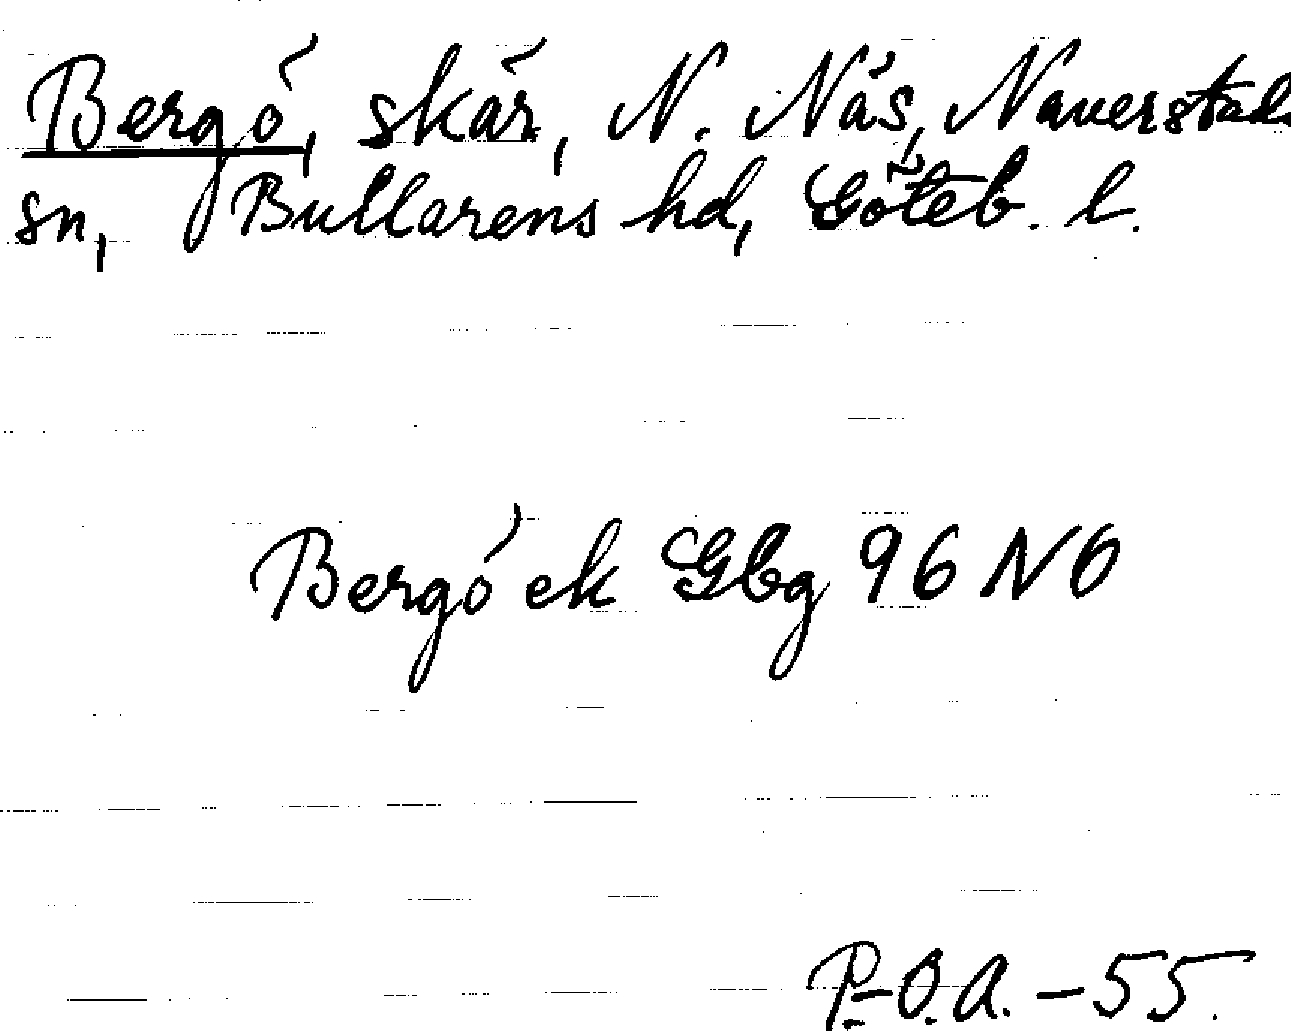 Bergö, skär, N. Näs, Naverstads
sn, Bullarens hd, Göteb. l.
Bergö ek Gbg 96 NO
P.-O.A. - 55.